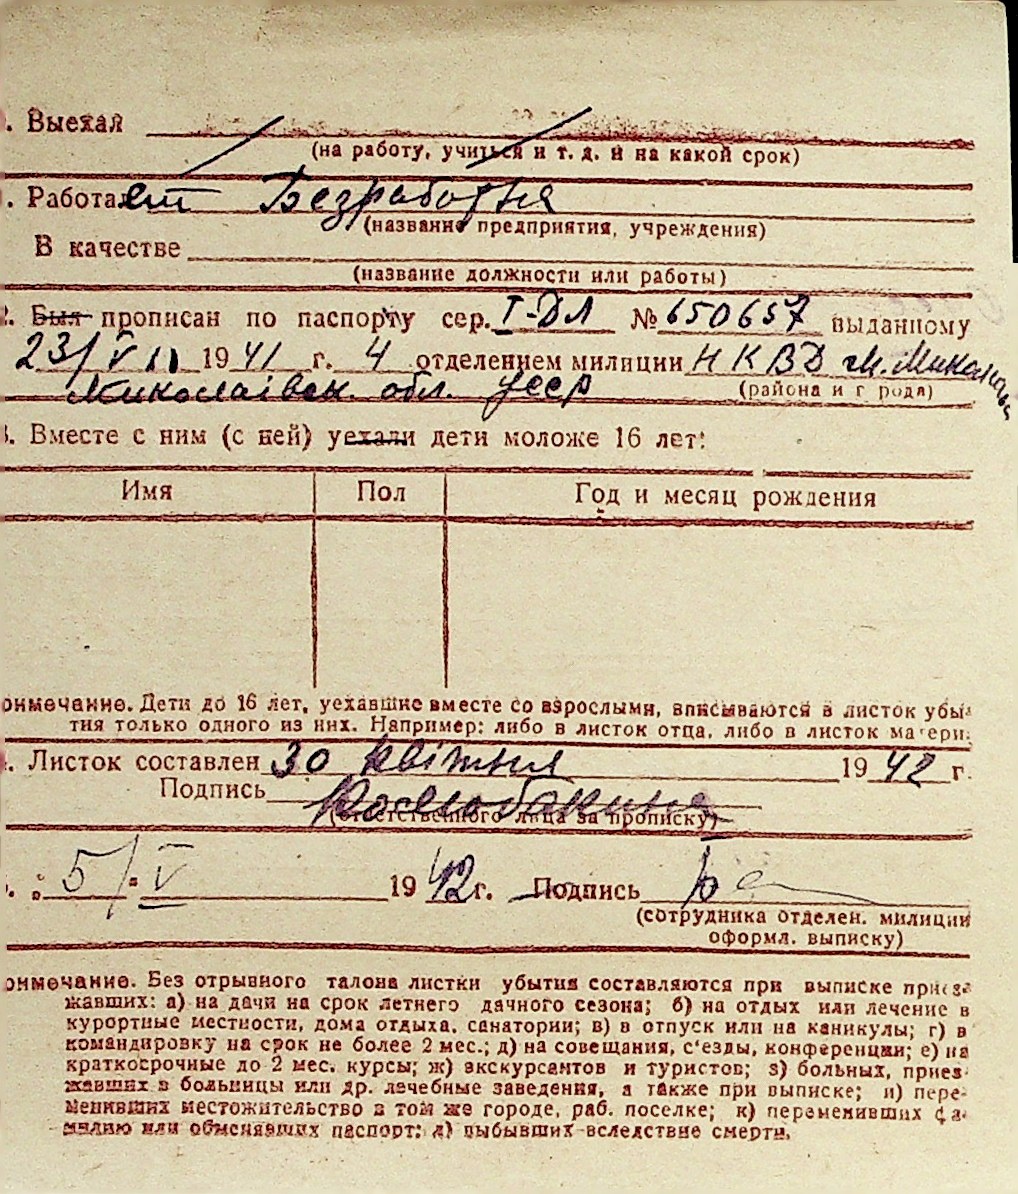 . Выехал
(на работу, учиться и т. д. и на какой срок)
. Работает Безработня
(название предприятия, учреждения)
В качестве
(название должности или работы)
. Был прописан по паспорту сер. I-ДЛ № 650657 выданному
23/VII 1941 г. 4 отделением милиции НКВД м. Миколаїв
Миколаівск. обл. УССР (района и г рода)
. Вместе с ним (с ней) уехали дети моложе 16 лет:
Имя Пол Год и месяц рождения
римечание. Дети до 16 лет, уехавшие вместе со взрослыми, вписываются в листок убы-
тия только одного из них. Например: либо в листок отца, либо в листок матери.
. Листок составлен 30 квітня 1942 г.
Подпись
(ответственного лица за прописку)
. 5/V 1942 г. Подпись
(сотрудника отделен. милиции
оформл. выписку)
римечание. Без отрывного талона листки убытия составляются при выписке приез-
жавших: а) на дачи на срок летнего дачного сезона; б) на отдых или лечение в
курортные местности, дома отдыха, санатории; в) в отпуск или на каникулы; г) в
командировку на срок не более 2 мес.; д) на совещания, с'езды, конференции; е) на
краткосрочные до 2 мес. курсы; ж) экскурсантов и туристов; з) больных, приез-
жавших в больницы или др. лечебные заведения, а также при выписке; и) пере-
менивших местожительство в том же городе, раб. поселке; к) переменивших фа-
милию или обменявших паспорт; л) выбывших вследствие смерти.